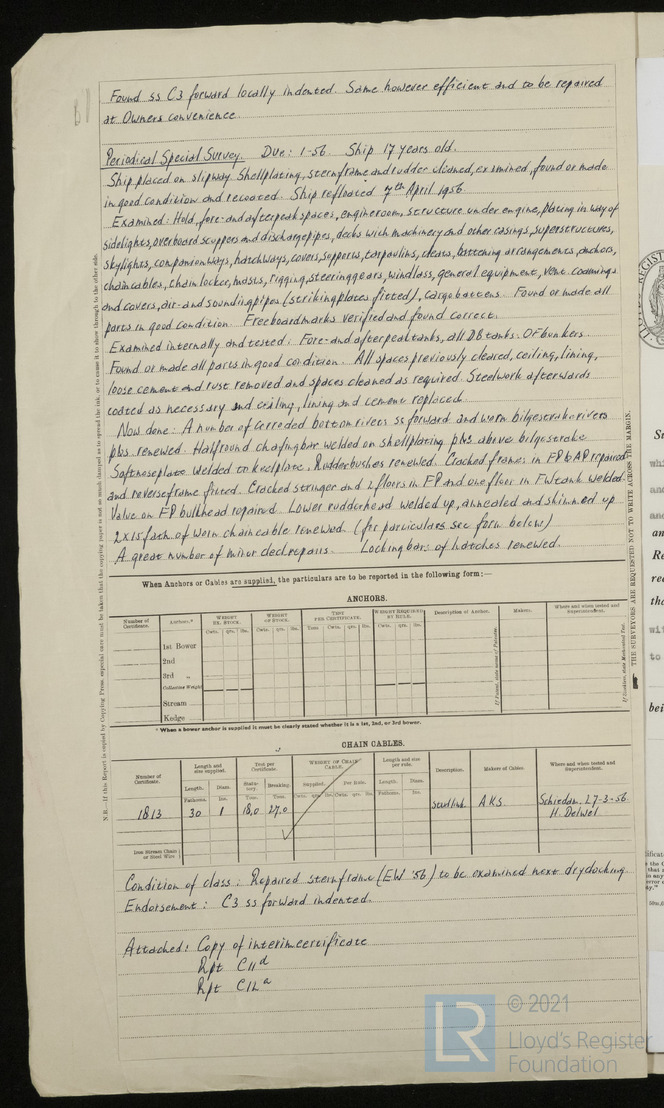 Found ss C3 forward locally indented. Same however efficient and to be repaired
at Owners convenience.
Periodical Special Survey. Due: 1-56. Ship 17 years old.
Ship placed on slipway. Shellplating, sternframe and rudder cleaned, examined, found or made
in good condition and recoated. Ship refloated 7th April 1956.
Examined: Hold, fore- and afterpeak spaces, engineroom, structure under engine, plating in way of
sidelights, overboard scuppers and dischargepipes, decks with machinery and other casings, superstructures,
skylights, companionways, hatchways, covers, supports, tarpaulins, cleats, battening arrangements, anchors,
chaincables, chainlocker, masts, rigging, steeringgears, windlass, general equipment, vent. coamings
and covers, air- and soundingpipes (striking plates fitted), cargobattens. Found or made all
parts in good condition. Freeboardmarks verified and found correct.
Examined internally and tested: Fore- and afterpeaktanks, all DB tanks. OF bunkers.
Found or made all parts in good condition. All spaces previously cleared, ceiling, lining,
loose cement and rust removed and spaces cleaned as required. Steelwork afterwards
coated as necessary and ceiling, lining and cement replaced.
Now done: A number of corroded bottomrivets ss forward and worn bilgestrakerivets
p&s renewed. Halfround chafingbar welded on shellplating p&s above bilgestrake
Softnoseplate welded to keelplate. Rudderbushes renewed. Cracked frames in FP & AP repaired
and reverseframe fitted. Cracked stringer and 2 floors in FP and one floor in FW tank welded.
Valve on FP bulkhead repaired. Lower rudderhead welded up, annealed and shimmed up.
2x15 fath of worn chaincable renewed (for particulars see form below)
A great number of minor deckrepairs. Locking bars of hatches renewed.
When Anchors or Cables are supplied, the particulars are to be reported in the following form:—
ANCHORS.
Number of Certificate.
Anchors.*
WEIGHT EX. STOCK.
WEIGHT OF STOCK.
TEST PER CERTIFICATE.
WEIGHT REQUIRED BY RULE.
Description of Anchor.
Makers.
Where and when tested and Superintendent.
Cwts. qrs. lbs. Cwts. qrs. lbs. Tons. Cwts. qrs. lbs. Cwts. qrs. lbs.
1st Bower
2nd
3rd „
Collective Weight
Stream
Kedge
* When a bower anchor is supplied it must be clearly stated whether it is a 1st, 2nd, or 3rd bower.
CHAIN CABLES.
Number of Certificate.
Length and size supplied.
Test per Certificate.
WEIGHT OF CHAIN CABLE.
Length and size per rule.
Description.
Makers of Cables.
Where and when tested and Superintendent.
Length. Diam. Statutory. Breaking. Supplied. Per Rule. Length. Diam.
Fathoms. Ins. Tons. Tons. Cwts. qrs. lbs. Cwts. qrs. lbs. Fathoms. Ins.
1813 30 1 18,0 27,0 studlink AKS. Schiedam, 27-3-56.
H. Delwel
Less Stream Chain or Steel Wire
Condition of class: Repaired sternframe (EW '56) to be examined next drydocking.
Endorsement: C3 ss forward indented.
Attached: Copy of interimcertificate
Rpt C11d
Rpt C12a
N.B.—If this Report is copied by Copying Press, especial care must be taken that the copying paper is not so much damped as to spread the ink, or to cause it to show through to the other side.
THE SURVEYORS ARE REQUESTED NOT TO WRITE ACROSS THE MARGIN.
LR
© 2021
Lloyd's Register
Foundation